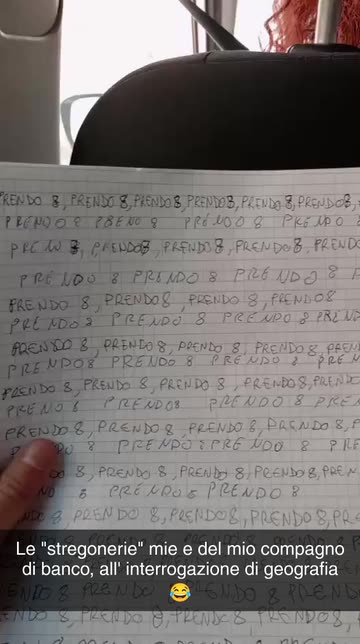 PRENDO 8, PRENDO 8, PRENDO 8, PRENDO 8, PRENDO 8, PRENDO 8,
PRENDO 8 PRENO 8 PRENDO 8 PRENDO 8
PREN 8, PRENDO 8, PRENDO 8, PRENDO 8, PRENDO
PRENDO 8 PRENDO 8 PRENDO 8
PRENDO 8, PRENDO 8, PRENDO 8, PRENDO 8
PRENDO 8 PRENDO 8 PRENDO 8 PRENDO 8
PRENDO 8, PRENDO 8, PRENDO 8, PRENDO 8,
PRENDO 8 PRENDO 8 PRENDO 8 PREN
PRENDO 8, PRENDO 8, PRENDO 8, PRENDO 8, PRENDO
PRENO 8 PRENDO 8 PRENDO 8 PRENDO 8
PRENDO 8, PRENDO 8, PRENDO 8, PRENDO 8,
8 PRENDO 8 PRENDO 8 PRENDO 8
8, PRENDO 8, PRENDO 8, PRENDO 8, PRENDO 8, PRE
8 PRENDO 8 PRENDO 8
8, PRENDO 8, PRENDO 8, PRENDO 8, PRENDO 8, PRE
Le "stregonerie" mie e del mio compagno
di banco, all' interrogazione di geografia
😂
PRENDO 8, PRENDO 8, PRENDO 8, PRENDO